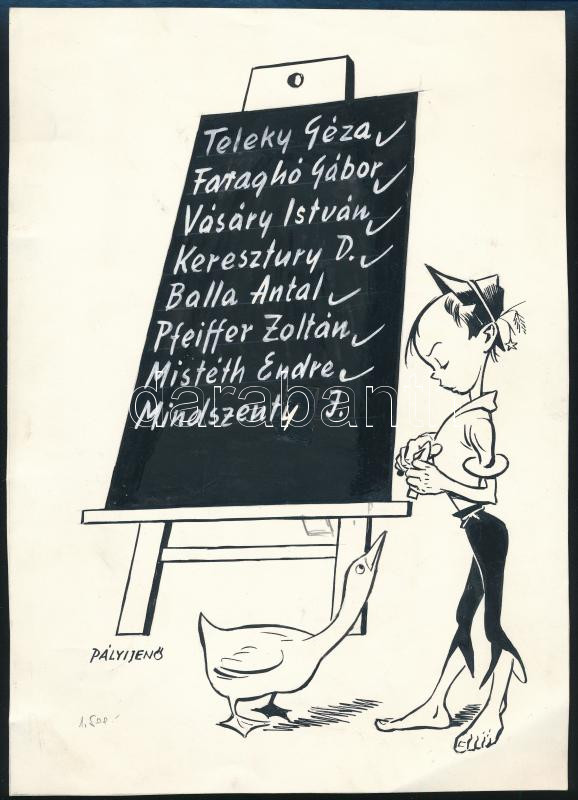 Teleky Géza ✓
Faraghó Gábor ✓
Vásáry István ✓
Keresztury D. ✓
Balla Antal ✓
Pfeiffer Zoltán ✓
Mistéth Endre ✓
Mindszenty J.
darabanth
PÁLYI JENŐ
1,500.-